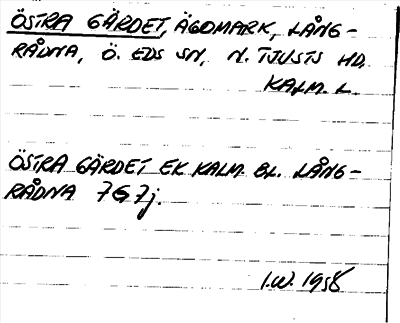 ÖSTRA GÄRDET, ÄGOMARK, LÅNG-
RÅDNA, Ö. EDS SN, N. TJUSTS HD.
KALM. L.
ÖSTRA GÄRDET EK KALM. BL. LÅNG-
RÅDNA 7G7j.
I.W. 1958